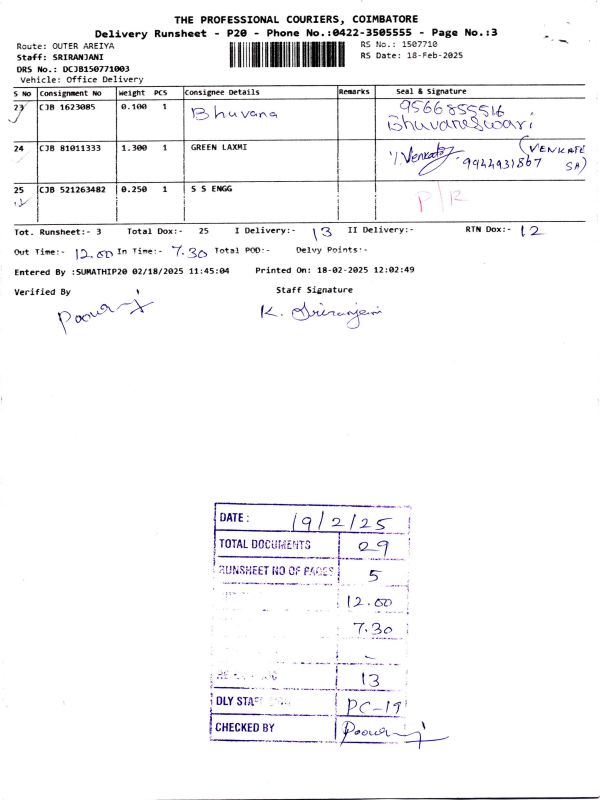 THE PROFESSIONAL COURIERS, COIMBATORE
Delivery Runsheet - P20 - Phone No.:0422-3505555 - Page No.:3
Route: OUTER AREIYA
RS No.: 1507710
Staff: SRIRANJANI
RS Date: 18-Feb-2025
DRS No.: DCJB150771003
Vehicle: Office Delivery
S No Consignment No Weight PCS Consignee Details Remarks Seal & Signature
23 CJB 1623085 0.100 1 Bhuvana 9566855516
Bhuvaneswari
24 CJB 81011333 1.300 1 GREEN LAXMI 9944931867 (VENKATE
SA)
25 CJB 521263482 0.250 1 S S ENGG P/R
Tot. Runsheet:- 3 Total Dox:- 25 I Delivery:- 13 II Delivery:- RTN Dox:- 12
Out Time:- 12.00 In Time:- 7.30 Total POD:- Delvy Points:-
Entered By :SUMATHIP20 02/18/2025 11:45:04 Printed On: 18-02-2025 12:02:49
Verified By Staff Signature
K. Sriranjani
DATE : 19/2/25
TOTAL DOCUMENTS 29
RUNSHEET NO OF PAGES 5
12.00
7.30
-
13
DLY STAFF PC-19
CHECKED BY